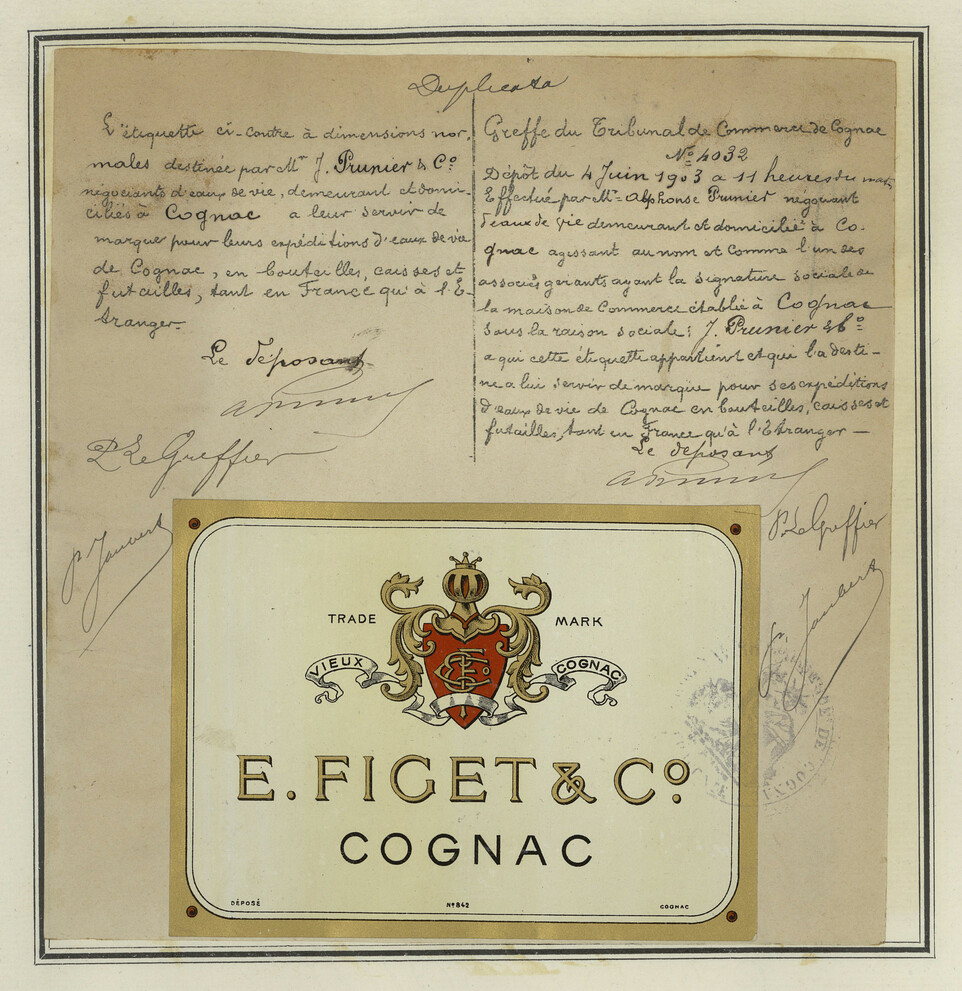 Duplicata
L'étiquette ci-contre à dimensions nor-
males destinée par Mr J. Prunier & Co
négociants d'eaux de vie, demeurant et domi-
ciliés à Cognac a leur servir de
marque pour leurs expéditions d'eaux de vie
de Cognac, en bouteilles, caisses et
futailles, tant en France qu'à l'É-
tranger.
Le déposant
P. Le Greffier
Greffe du Tribunal de Commerce de Cognac
No 4032
Dépôt du 4 Juin 1903 a 11 heures du mat.
Effectué par Mr Alphonse Prunier négociant
d'eaux de vie demeurant et domicilié à Co-
gnac agissant au nom et comme l'un des
associés gérants ayant la signature sociale de
la maison de Commerce établie à Cognac
sous la raison sociale: J. Prunier & Co
a qui cette étiquette appartient et qui l'a desti-
née a lui servir de marque pour ses expéditions
d'eaux de vie de Cognac en bouteilles, caisses et
futailles, tant en France qu'à l'Étranger —
Le déposant
P. Le Greffier
TRADE MARK
VIEUX COGNAC
E. FIGET & Co
COGNAC
DÉPOSÉ No 842 COGNAC